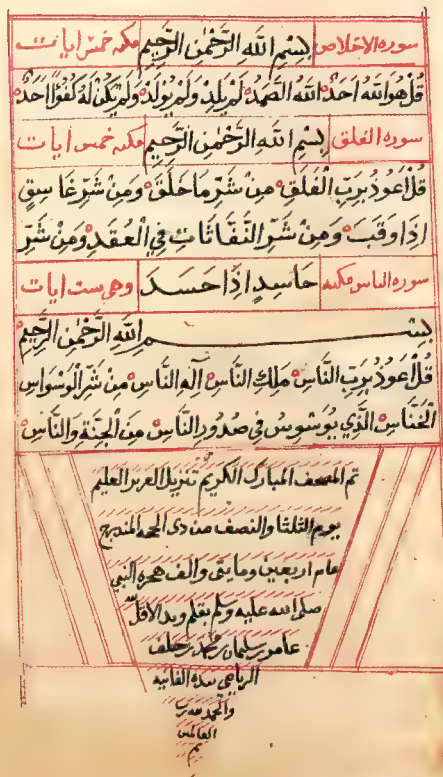 سورة الاخلاص بِسْمِ اللهِ الرَّحْمٰنِ الرَّحِيمِ مكية خمس ايات
قُلْ هُوَ اللهُ اَحَدٌ اللهُ الصَّمَدُ لَمْ يَلِدْ وَلَمْ يُولَدْ وَلَمْ يَكُنْ لَهُ كُفُوًا اَحَدٌ
سورة الفلق بِسْمِ اللهِ الرَّحْمٰنِ الرَّحِيمِ مكية خمس ايات
قُلْ اَعُوذُ بِرَبِّ الْفَلَقِ مِنْ شَرِّ مَا خَلَقَ وَمِنْ شَرِّ غَاسِقٍ
اِذَا وَقَبَ وَمِنْ شَرِّ النَّفَّاثَاتِ فِي الْعُقَدِ وَمِنْ شَرِّ
سورة الناس مكية حَاسِدٍ اِذَا حَسَدَ وهي ست ايات
بِسْمِ اللهِ الرَّحْمٰنِ الرَّحِيمِ
قُلْ اَعُوذُ بِرَبِّ النَّاسِ مَلِكِ النَّاسِ اِلٰهِ النَّاسِ مِنْ شَرِّ الْوَسْوَاسِ
الْخَنَّاسِ الَّذِي يُوَسْوِسُ فِي صُدُورِ النَّاسِ مِنَ الْجِنَّةِ وَالنَّاسِ
تم المصحف المبارك الكريم تنزيل العزيز العليم
يوم الثلثا والنصف من ذي الحجه
عام اربعين ومايتي والف هجرة النبي
صلى الله عليه وسلم بقلم ويد الاقل
عامر سلمان بن محمد بن خلف
الرياحي بيده الفانيه
والحمد لله رب
العالمين
تم